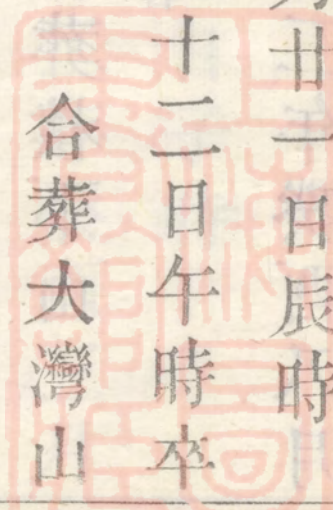 廿一日辰時
十二日午時卒
合葬大灣山